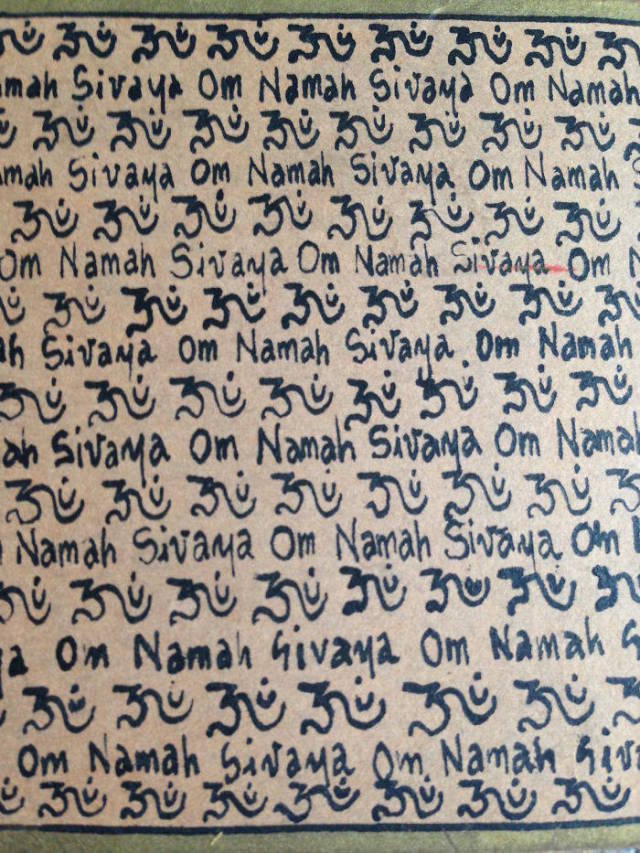 ॐ ॐ ॐ ॐ ॐ ॐ ॐ ॐ ॐ
amah Sivaya Om Namah Sivaya Om Namah
ॐ ॐ ॐ ॐ ॐ ॐ ॐ ॐ ॐ
amah Sivaya Om Namah Sivaya Om Namah S
ॐ ॐ ॐ ॐ ॐ ॐ ॐ ॐ
Om Namah Sivaya Om Namah Sivaya Om N
ॐ ॐ ॐ ॐ ॐ ॐ ॐ ॐ ॐ
ah Sivaya Om Namah Sivaya Om Namah
ॐ ॐ ॐ ॐ ॐ ॐ ॐ ॐ
ah Sivaya Om Namah Sivaya Om Namah
ॐ ॐ ॐ ॐ ॐ ॐ ॐ ॐ
Namah Sivaya Om Namah Sivaya Om N
ॐ ॐ ॐ ॐ ॐ ॐ ॐ ॐ
ya Om Namah Sivaya Om Namah S
ॐ ॐ ॐ ॐ ॐ ॐ ॐ ॐ
Om Namah Sivaya Om Namah Siva
ॐ ॐ ॐ ॐ ॐ ॐ ॐ ॐ